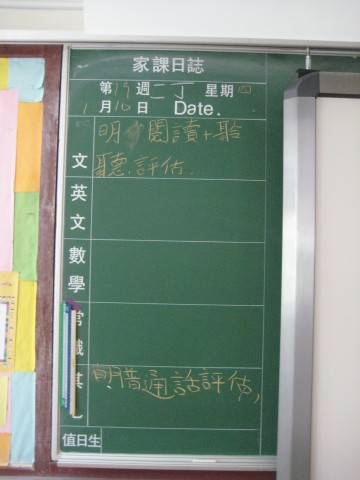 家課日誌
第19週二丁 星期四
1月10日 Date.
明 閱讀+聆
文 聽.評估.
英
文
數
學
常
識
其 明.普通話評估,
值日生